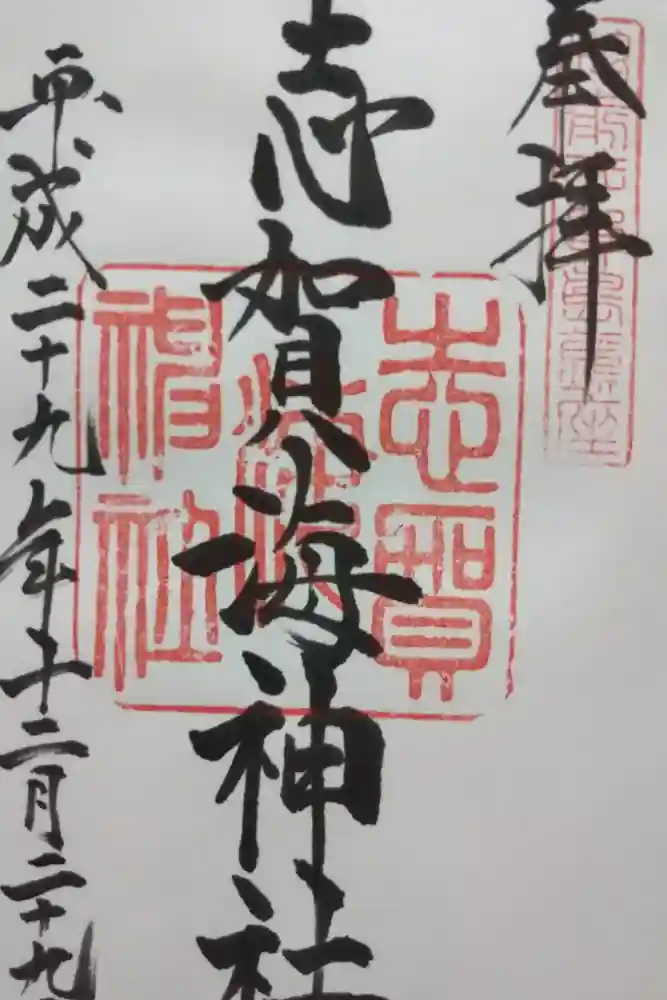 奉拝
志賀海神社
志賀海神社
平成二十九年十二月二十九